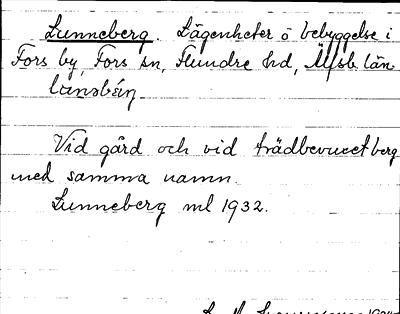 Lunneberg. Lägenheter o bebyggelse i
Fors by, Fors sn, Flundre hd, Älfsb. län
Vid gård och vid trädbevuxet berg
med samma namn.
Lunneberg ml 1932.